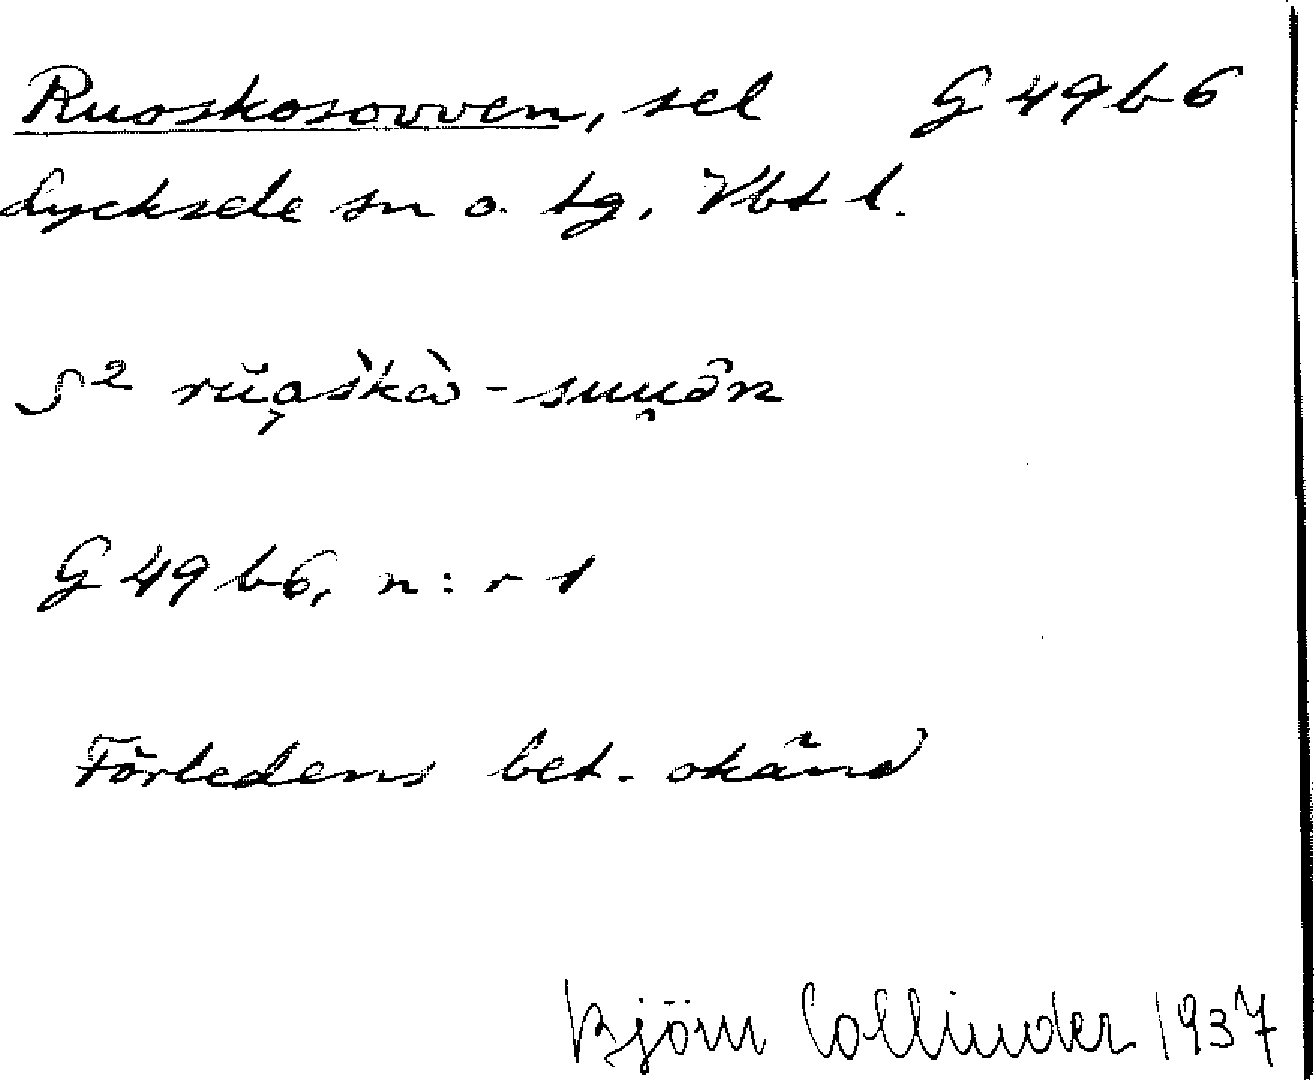 Ruoskosovven, sel G 49 b 6
Lycksele sn o. tg. Vbt l.
G 49 b 6, n:r 1
Förledens bet. okänd
Björn Collinder 1937